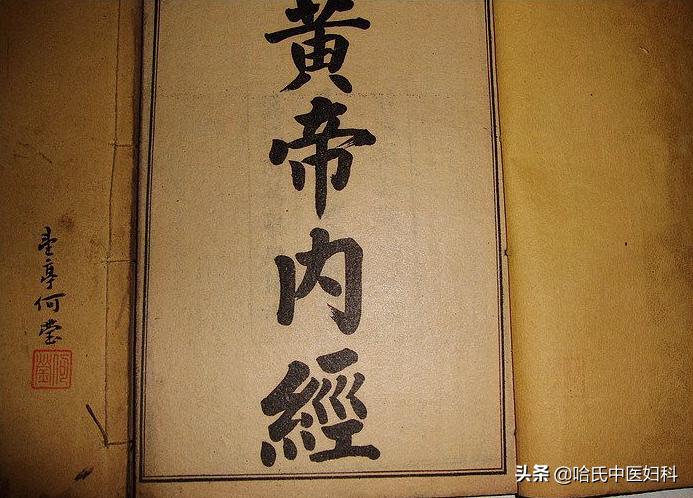 黄帝内經
亭何瑩
头条 @哈氏中医妇科